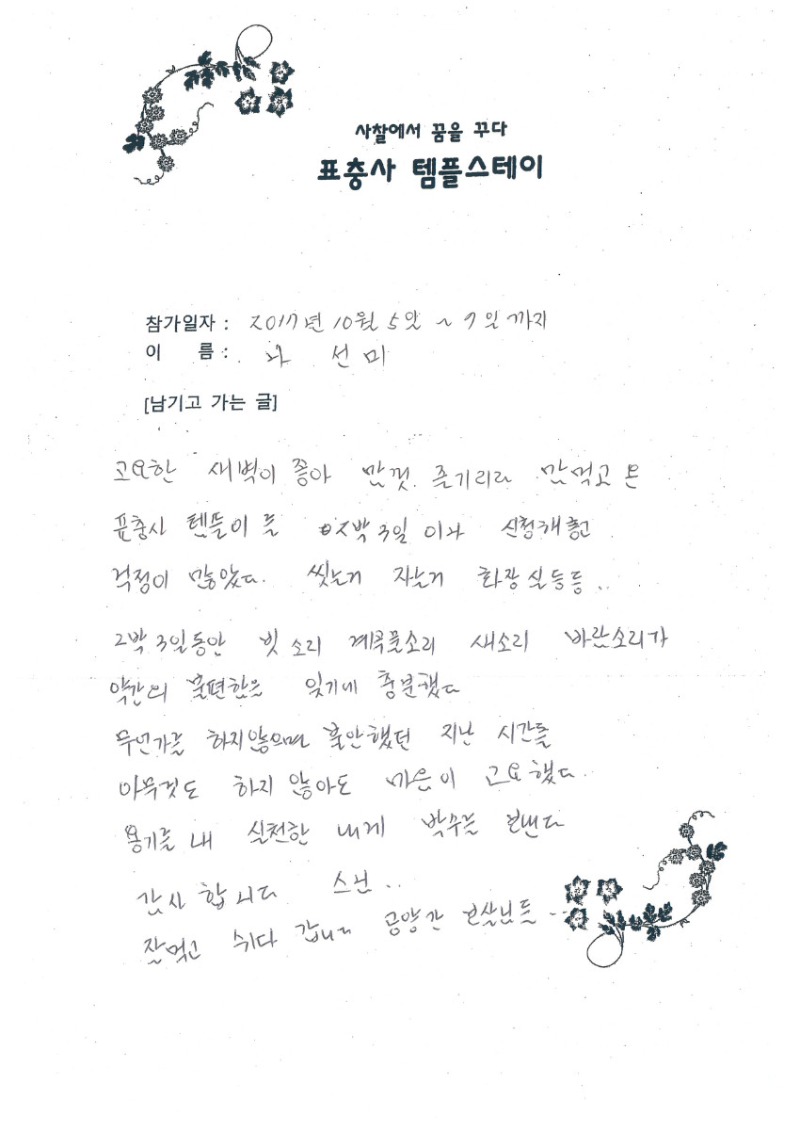 사찰에서 꿈을 꾸다
표충사 템플스테이
참가일자 : 2017년 10월 5일 ~ 7일까지
이 름 : 나 선미
[남기고 가는 글]
고요한 새벽이 좋아 맘껏 즐기리라 맘먹고 온
표충사 템플이 를 2박 3일 이나 신청해 놓고
걱정이 많았다. 씻는거 자는거 화장실등등..
2박 3일동안 빗소리 계곡물소리 새소리 바람소리가
약간의 불편함은 잊기에 충분했다
무언가를 하지않으면 불안했던 지난 시간들
아무것도 하지 않아도 마음이 고요했다.
용기를 내 실천한 내게 박수를 보낸다
감사 합니다 스님..
잘먹고 쉬다 갑니다 공양간 보살님들..